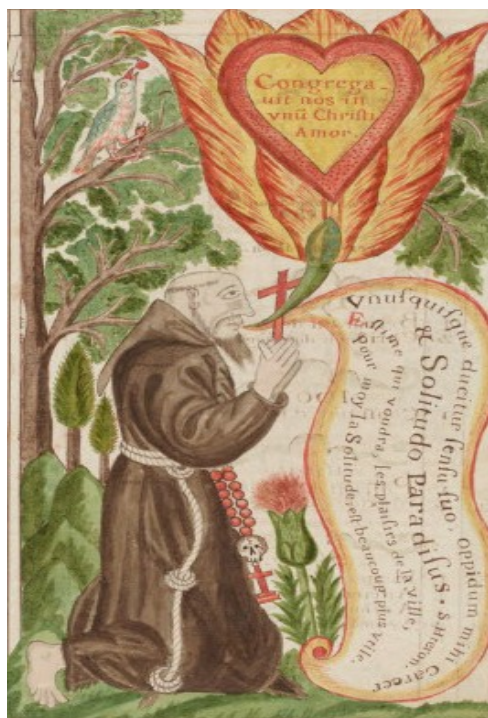 Congrega-
uit nos in
vnū Chriſti
Amor.
Vnuſquiſque ducitur ſenſu ſuo. oppidum mihi carcer
& Solitudo Paradiſus. S. Hieron.
Eſtime qui voudra, les plaiſirs de la ville,
Pour moy la Solitude, eſt beaucoup plus vtille.